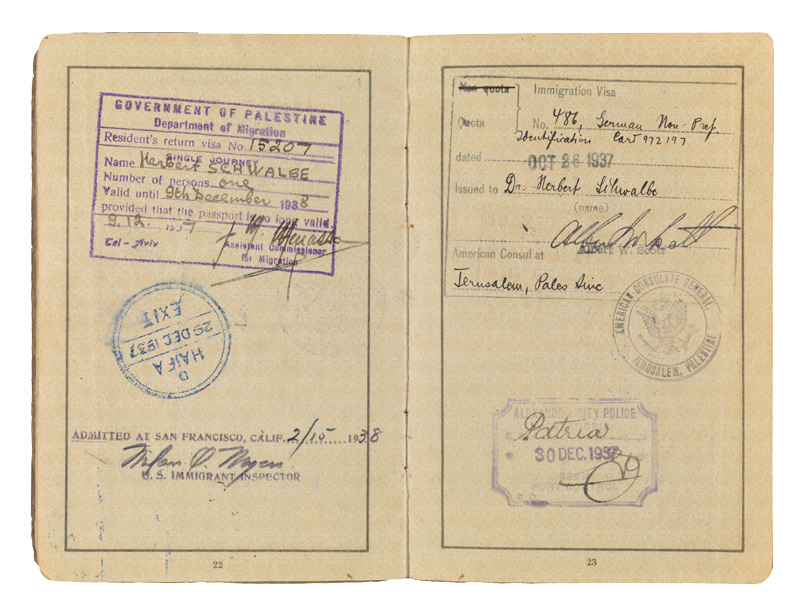 GOVERNMENT OF PALESTINE
Department of Migration
Resident's return visa No. 15207
SINGLE JOURNEY
Name Herbert SCHWALBE
Number of persons one
Valid until 9th December 1938
provided that the passport is no longer valid.
9.12. 1937
Tel-Aviv
Assistant Commissioner
for Migration
HAIFA
29 DEC 1937
EXIT
ADMITTED AT SAN FRANCISCO, CALIF. 2/15 1938
U.S. IMMIGRANT INSPECTOR
22
Non quota Immigration Visa
Quota No. 486, German Non-Pref.
Identification Card 972197
dated OCT 26 1937
Issued to Dr. Herbert Schwalbe
(name)
Robert W. Scott
American Consul at
Jerusalem, Palestine
AMERICAN CONSULATE GENERAL
JERUSALEM, PALESTINE
CITY POLICE
Patria
30 DEC. 1937
23